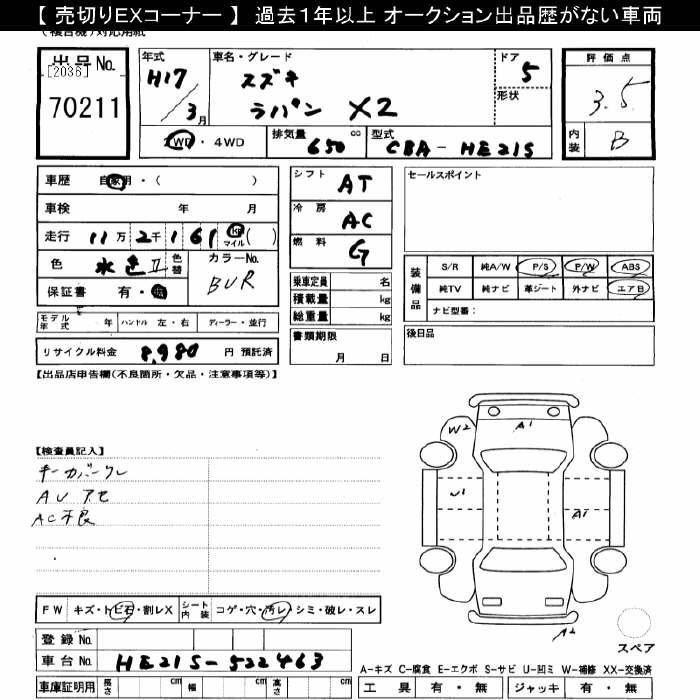 【 売切りEXコーナー 】 過去１年以上 オークション出品歴がない車両
(複合機)対応用紙
出品No. [2036] 70211
年式 H17/3月
車名・グレード スズキ ラパン X2
ドア 5
形状
評価点 3.5
内装 B
2WD・4WD
排気量 650 cc
型式 CBA-HE21S
車歴 自家用・( )
車検 年 月
走行 11万2千161 km マイル ( )
色 水色II 色替
カラーNo. BUR
保証書 有・無
シフト AT
冷房 AC
燃料 G
乗車定員 名
積載量 kg
総重量 kg
書類期限 月 日
セールスポイント
装備品 S/R 純A/W P/S P/W ABS
純TV 純ナビ 革シート 外ナビ エアB
ナビ型番：
後日品
モデル年式 年 ハンドル 左・右 ディーラー・並行
リサイクル料金 8,980 円 預託済
【出品店申告欄(不良箇所・欠品・注意事項等)】
【検査員記入】
キーカバークレ
AC不良
W2
A1
U1
A1
A2
スペア
FW キズ・トビ石・割レX シート内装 コゲ・穴・汚レ・シミ・破レ・スレ
登録No.
車台No. HE21S-522463
車庫証明用 長さ cm 幅 cm 高さ cm
A-キズ C-腐食 E-エクボ S-サビ U-凹ミ W-補修 XX-交換済
工具 有・無 ジャッキ 有・無